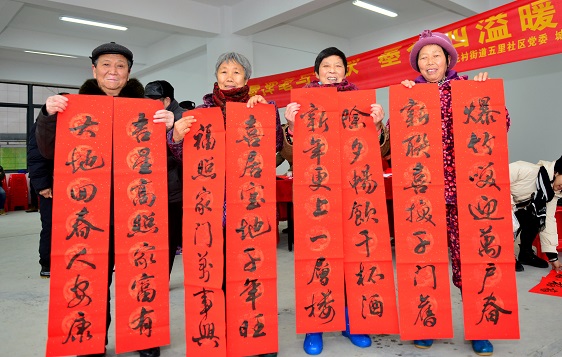 四溢暖
村街道五里社区党委 城
爆竹迎萬户春
新联喜换千门舊
除夕畅饮千杯酒
新年更上一层楼
喜居宝地千年旺
福照家门萬事興
吉星高照家富有
大地回春人安康